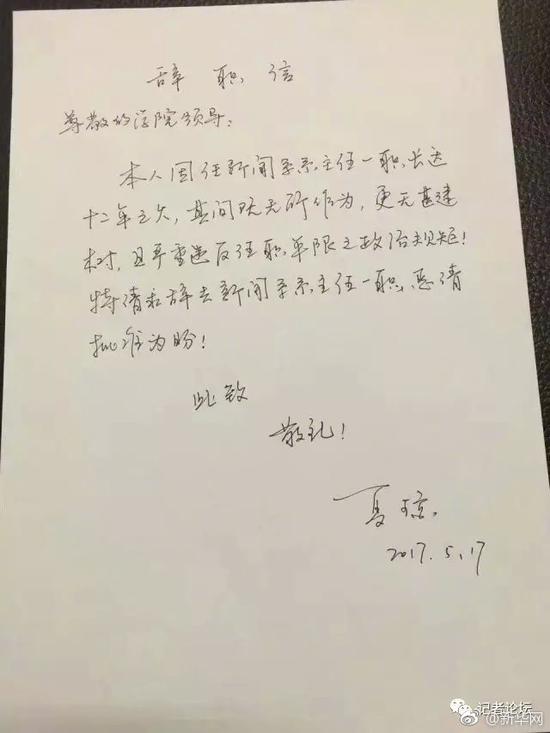 辞职信
尊敬的学院领导：
本人因任新闻系系主任一职长达
十二年之久，其间既无所作为，更无甚建
树，且严重违反任职年限之政治规矩！
特请求辞去新闻系系主任一职，恳请
批准为盼！
此致
敬礼！
夏琼
2017.5.17
记者论坛
@新华网